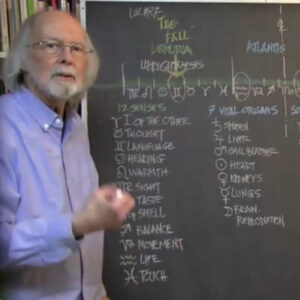 LUCIFER
THE
FALL
LEMURIA
ATLANTIS
UPRIGHTNESS
♊ ♓ ♈
12 SENSES
♈ I OF THE OTHER
♉ THOUGHT
♊ LANGUAGE
♋ HEARING
♌ WARMTH
♍ SIGHT
TASTE
SMELL
♐ BALANCE
♑ MOVEMENT
♒ LIFE
♓ TOUCH
7 VITAL ORGANS
♄ SPLEEN
♃ LIVER
♂ GALL BLADDER
☉ HEART
♀ KIDNEYS
☿ LUNGS
☽ BRAIN
REPRODUCTION